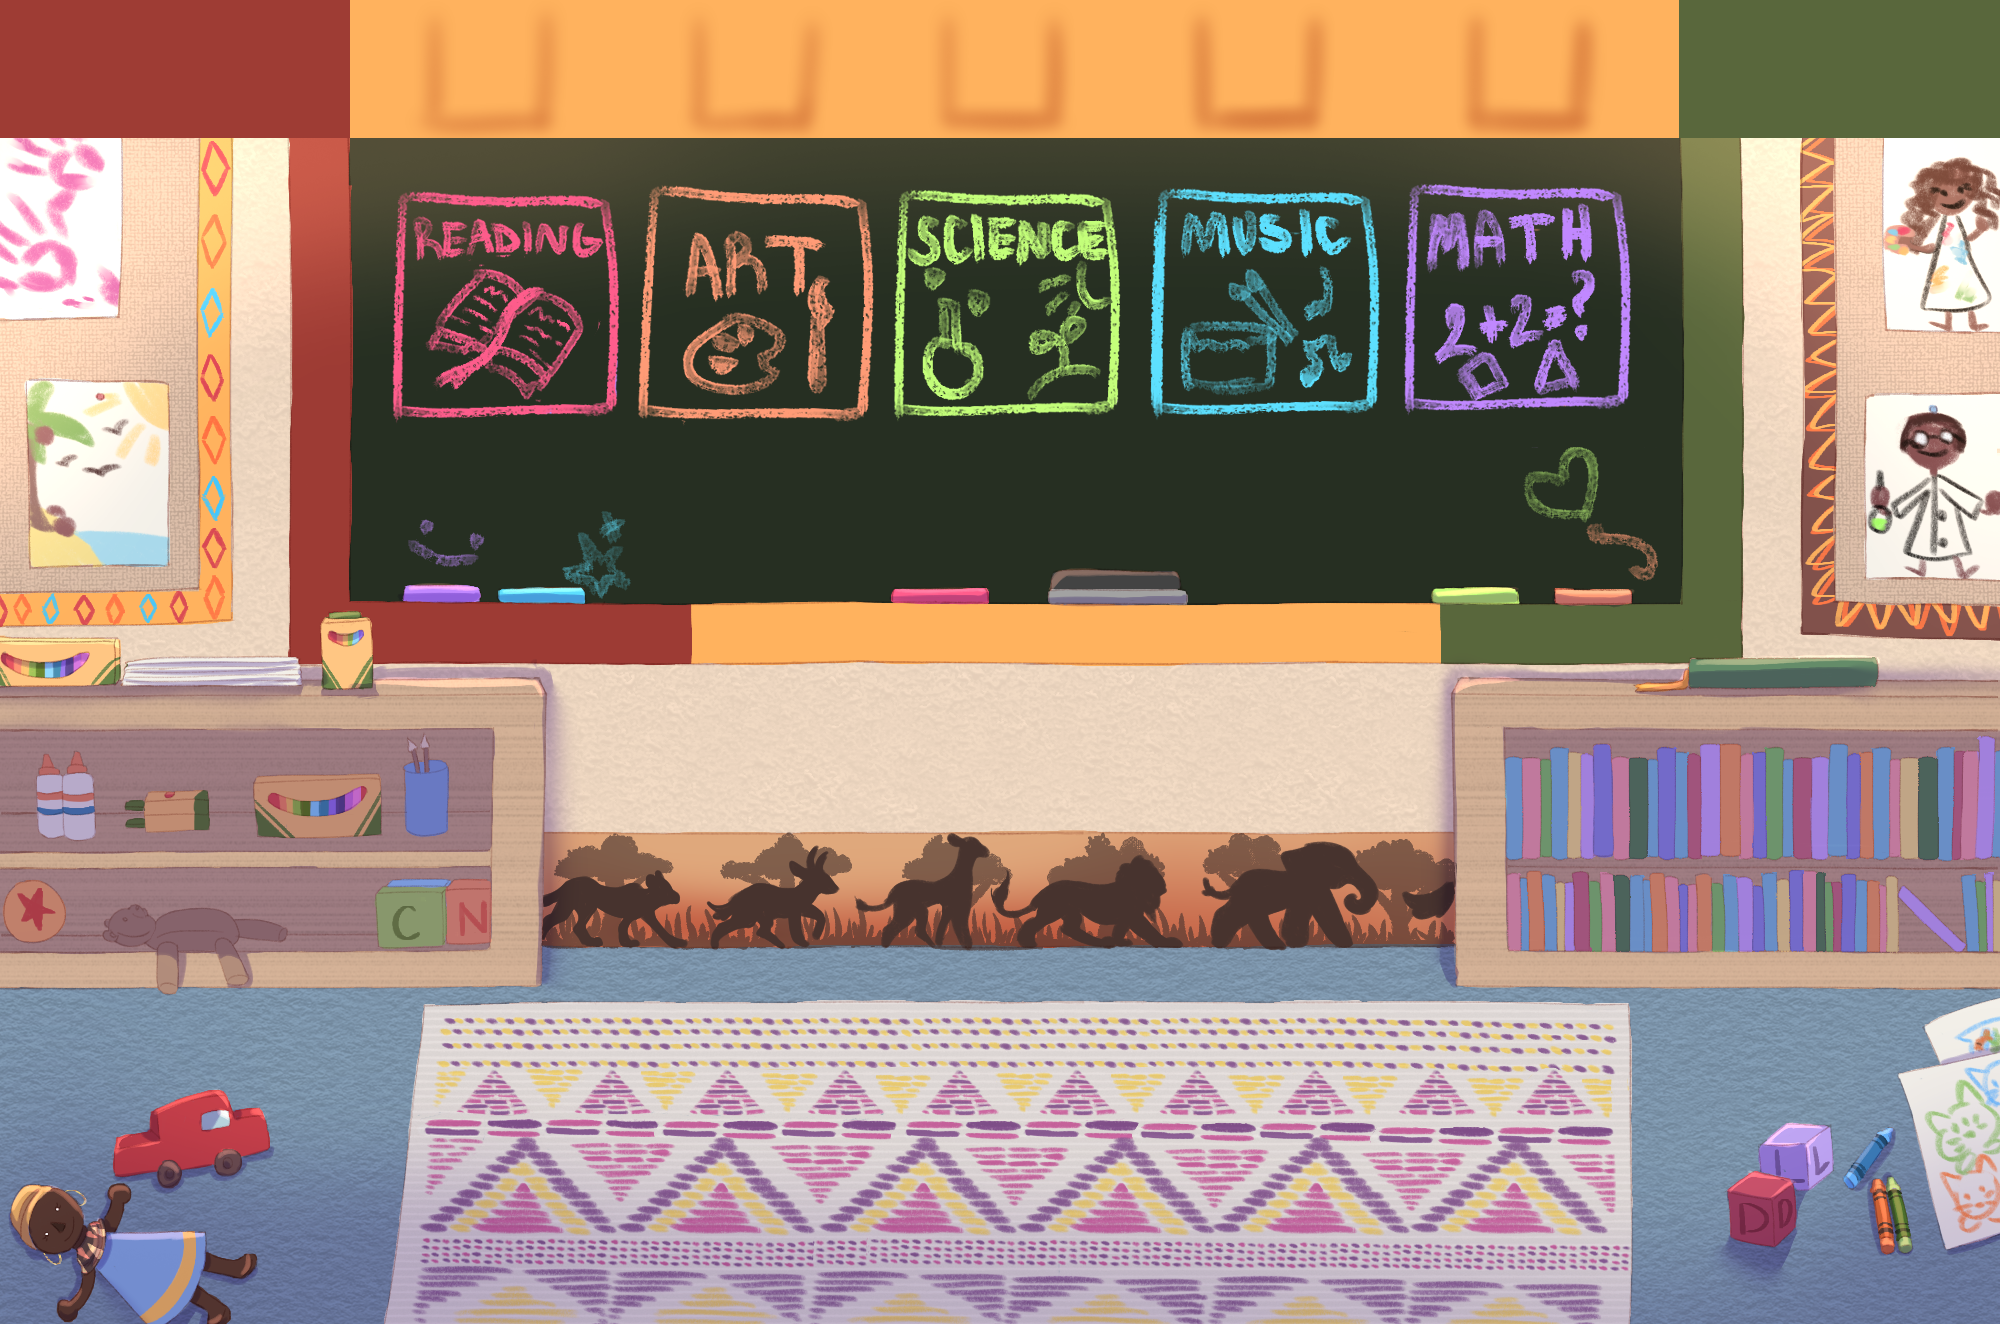 READING
ART
SCIENCE
MUSIC
MATH
2+2=?
C
N
I
L
D
D